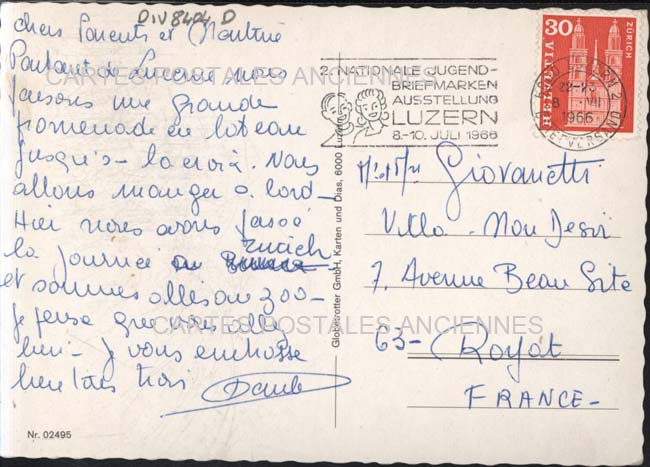 DIV8404 D
chers Parents et Martine
Partant de Lucerne nous
faisons une grande
promenade en bateau
jusqu'à la croix. Nous
allons manger à bord-
Hier nous avons passé
la journée à Zurich
et sommes allés au zoo-
je pense que vous allez
bien- je vous embrasse
bien tous trois
Nr. 02495
CARTES POSTALES ANCIENNES
CARTES POSTALES ANCIENNES
Globetrotter GmbH, Karten und Dias, 6000 Luzern
2. NATIONALE JUGEND-
BRIEFMARKEN
AUSSTELLUNG
LUZERN
8.-10. JULI 1966
30
HELVETIA
ZÜRICH
1966
Giovanetti
Villa Mon Desir
7, Avenue Beau Site
63- Royat
FRANCE-